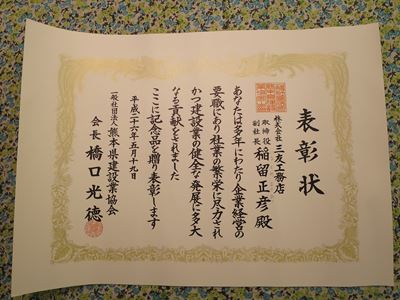 表彰状
株式会社 三友工務店
取締役副社長 稲留正彦殿
あなたは多年にわたり企業経営の
要職にあり社業の繁栄に尽力され
かつ建設業の健全な発展に多大
なる貢献をされました
ここに記念品を贈り表彰します
平成二十六年五月十九日
一般社団法人 熊本県建設業協会
会長 橋口光徳